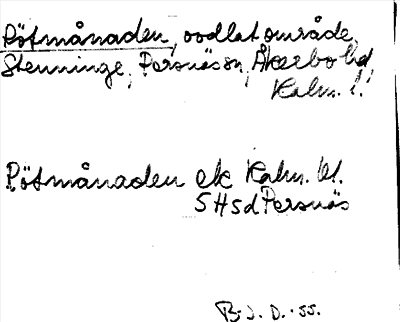 Rötmånaden, oodlat område,
Stenninge, Persnäs sn, Åkerbo hd,
Kalm. l.
Rötmånaden ek Kalm. bl.
5 H sd Persnäs
B. J. D. -55.